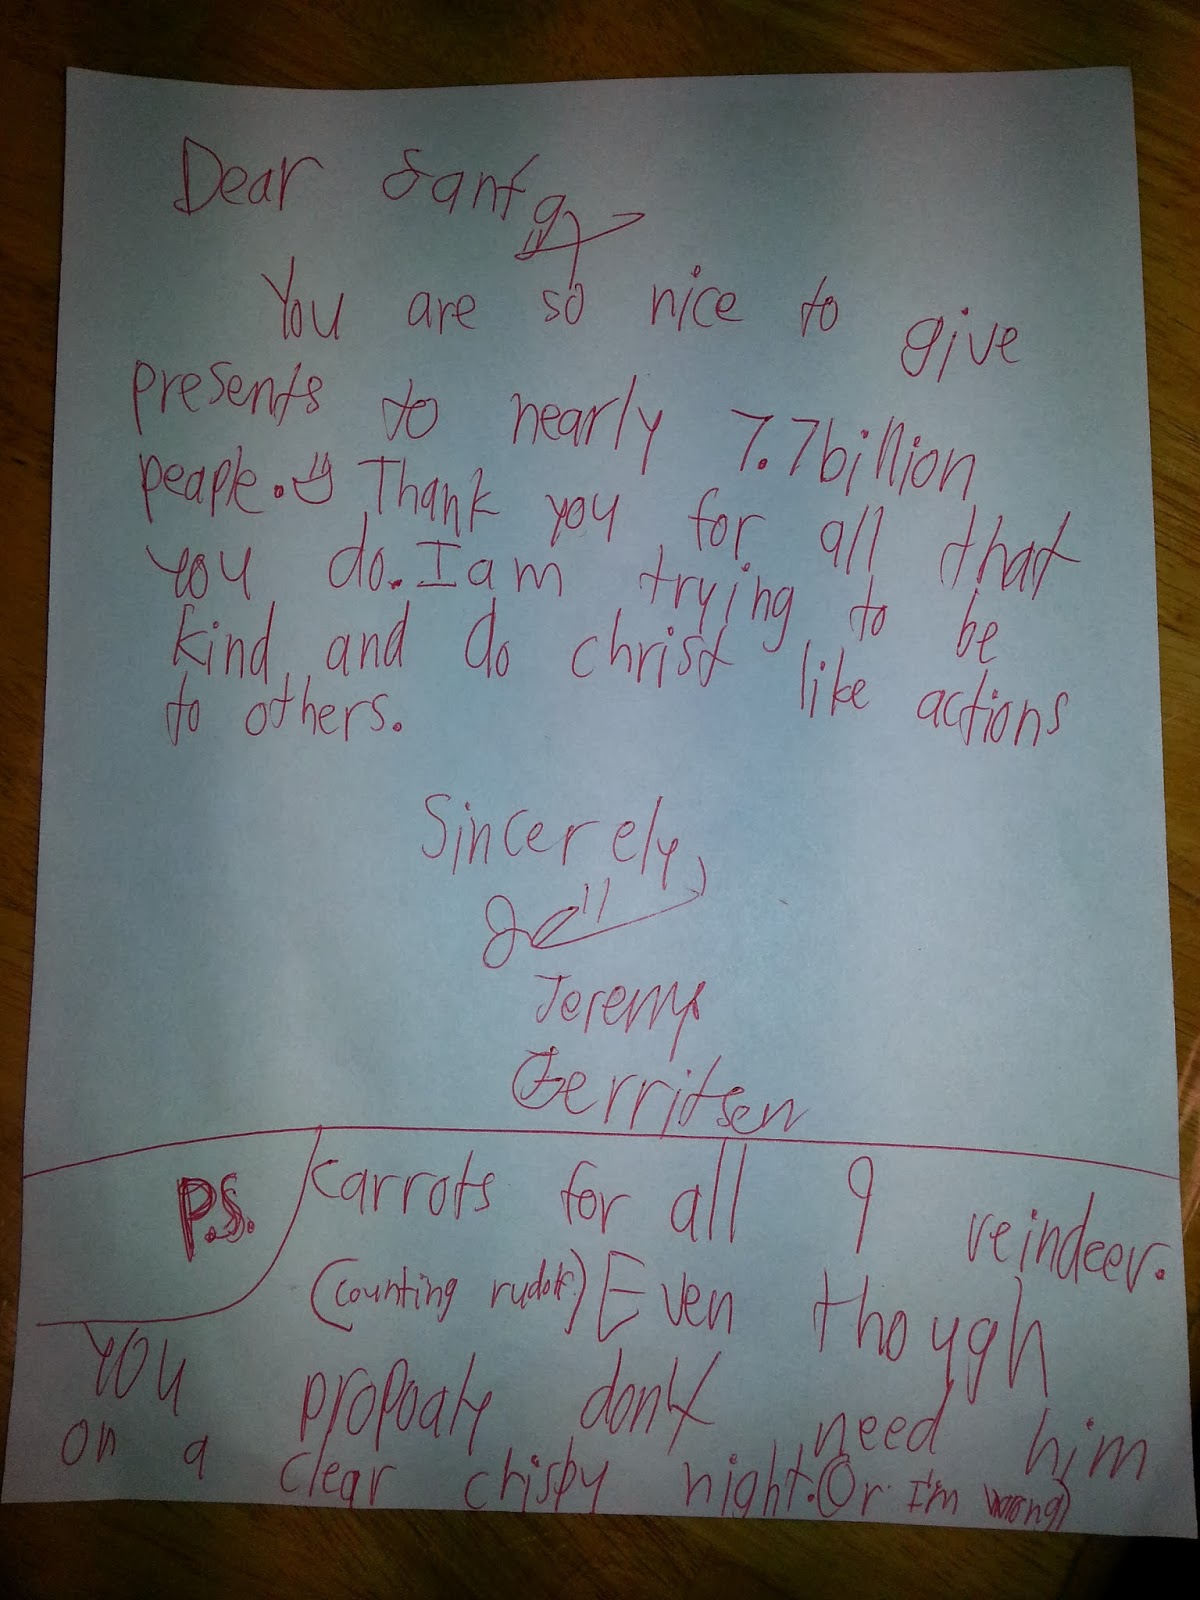 Dear Santa
You are so nice to give
presents to nearly 7.7 billion
peaple. Thank you for all that
you do. I am trying to be
kind and do christ like actions
to others.
Sincerely,
Jeremy
Gerritsen
P.S. Karrots for all 9 reindeer.
(counting rudolf) Even though
you propoaly dont need him
on a clear chispy night. (Or I'm wrong)